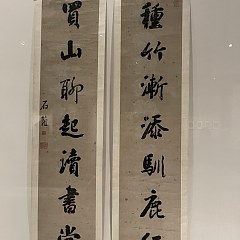 種竹漸添馴鹿
買山聊起讀書
石菴